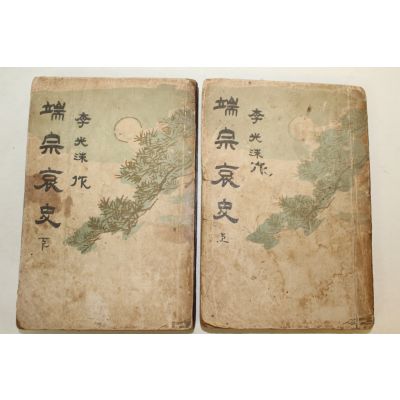 端宗哀史 下
李光洙 作
端宗哀史 上
李光洙 作